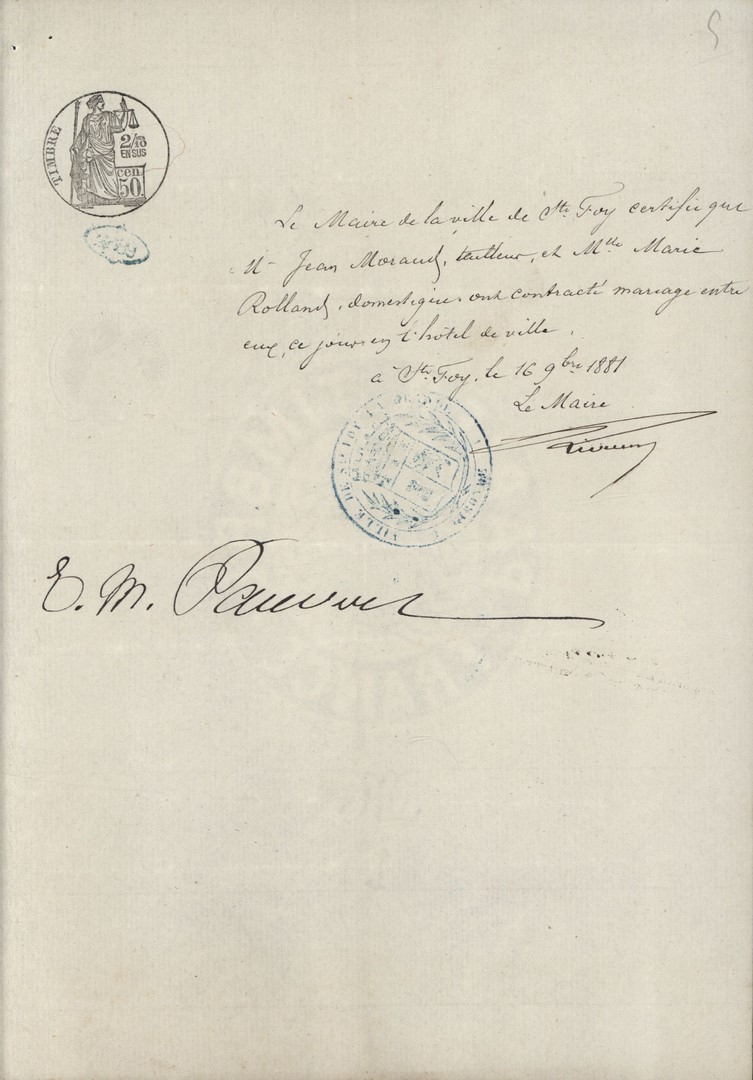 5
TIMBRE
2/10
EN SUS
cen.
50.
Le Maire de la ville de Ste Foy certifie que
Mr Jean Moraud, tailleur, et Mlle Marie
Rolland, domestique, ont contracté mariage entre
eux, ce jour, en l'hôtel de ville.
à Ste Foy, le 16 9bre 1881
Le Maire
VILLE DE STE FOY LA GRANDE
E. M.